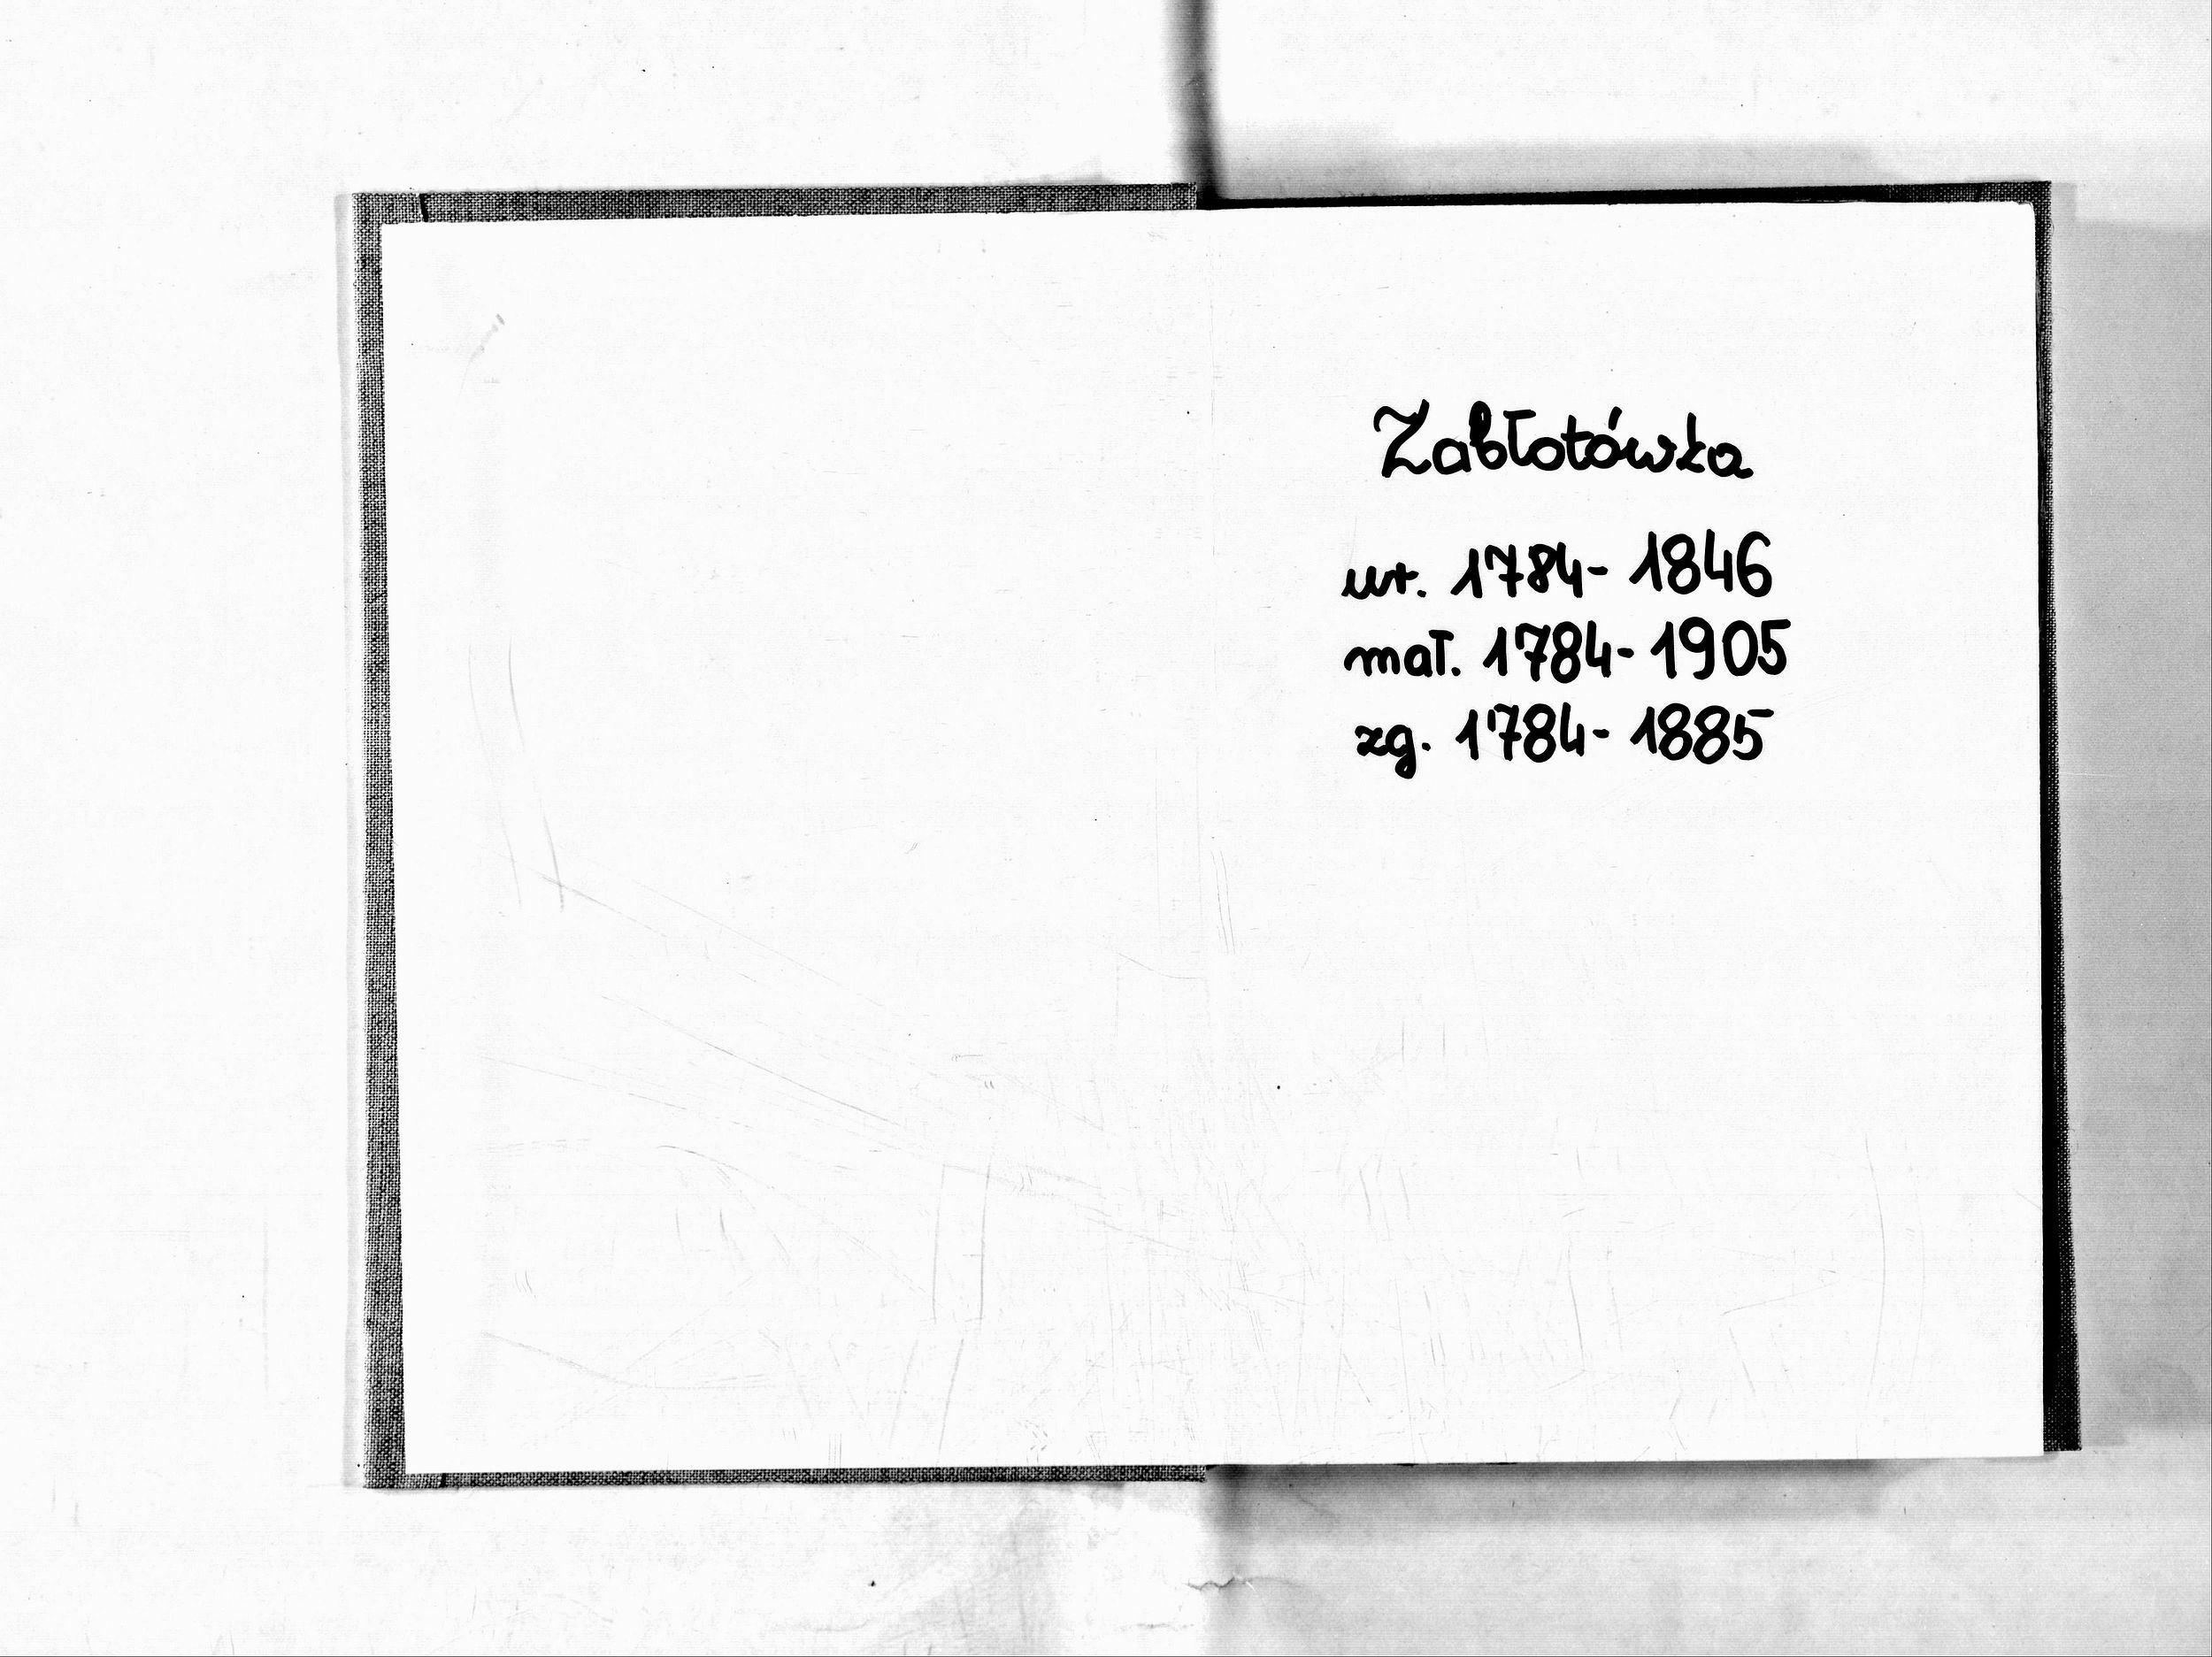 Zabłotówka
ur. 1784-1846
mał. 1784-1905
zg. 1784-1885